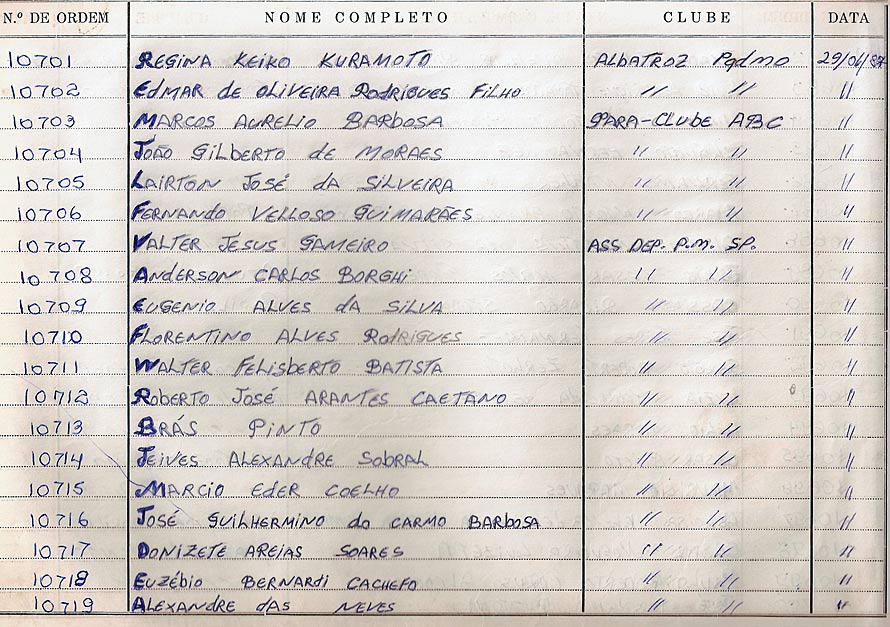 N.º DE ORDEM NOME COMPLETO CLUBE DATA
10701 REGINA KEIKO KURAMOTO ALBATROZ Pqdmo 29/04/87
10702 EdMAR de OLIVEIRA RodRIGUES FILHO " " "
10703 MARCOS AURELIO BARBOSA PARA-CLUBE ABC "
10704 JOÃO GILBERTO de MORAES " " "
10705 LAIRTON JOSÉ dA SILVEIRA " " "
10706 FERNANDO VELLOSO GUIMARÃES " " "
10707 VALTER JESUS GAMEIRO ASS DEP. P.M. SP. "
10708 ANDERSON CARLOS BORGHI " " "
10709 EUGENIO ALVES dA SILVA " " "
10710 FLORENTINO ALVES RodRIGUES " " "
10711 WALTER FELISBERTO BATISTA " " "
10712 ROBERTO JOSÉ ARANTES CAETANO " " "
10713 BRÁS PINTO " " "
10714 JEIVES ALEXANDRE SOBRAL " " "
10715 MARCIO EdER COELHO " " "
10716 JOSÉ GUILHERMINO do CARMO BARBOSA " " "
10717 DONIZETE AREIAS SOARES " " "
10718 EUZÉBIO BERNARdi CACHEFO " " "
10719 ALEXANDRE dAS NEVES " " "